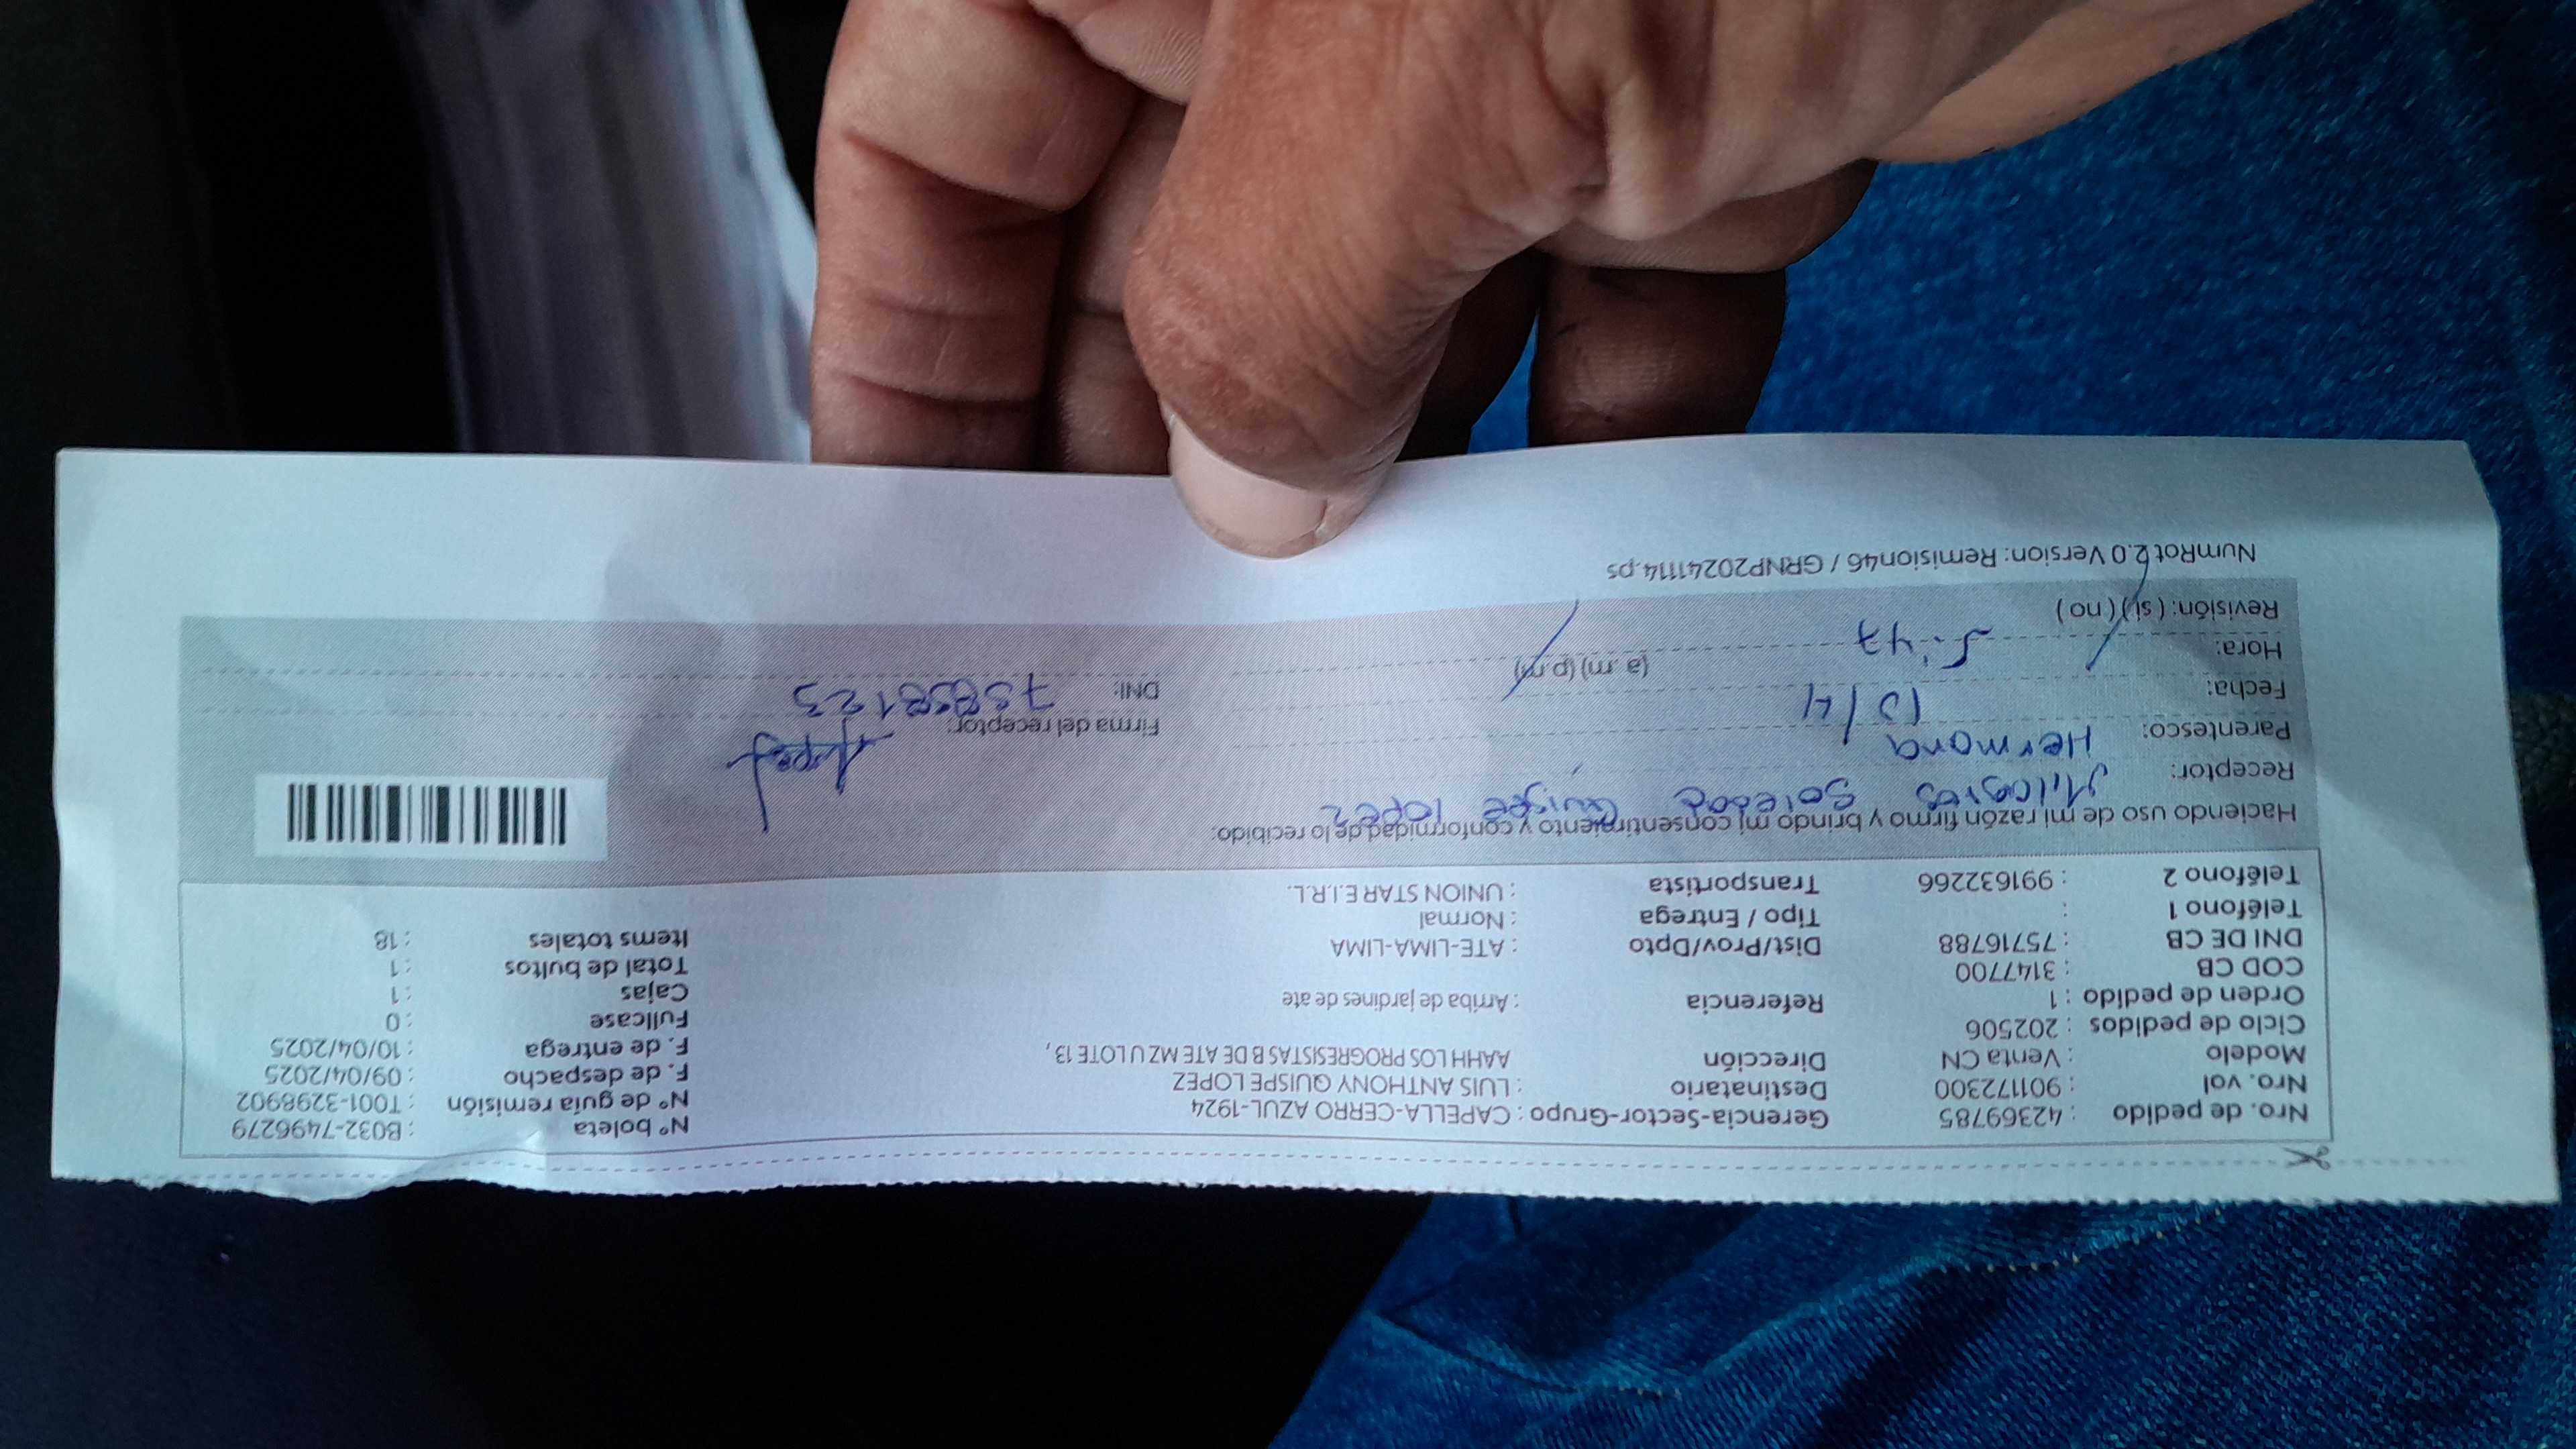 Nro. de pedido : 42369785 Gerencia-Sector-Grupo : CAPELLA-CERRO AZUL-1924 N° boleta : B032-7496279
Nro. vol : 901172300 Destinatario : LUIS ANTHONY QUISPE LOPEZ N° de guía remisión : T001-3298902
Modelo : Venta CN Dirección AAHH LOS PROGRESISTAS B DE ATE MZ U LOTE 13, F. de despacho : 09/04/2025
Ciclo de pedidos : 202506 F. de entrega : 10/04/2025
Orden de pedido : 1 Referencia : Arriba de jardines de ate Fullcase : 0
COD CB : 3147700 Cajas : 1
DNI DE CB : 75716788 Dist/Prov/Dpto : ATE-LIMA-LIMA Total de bultos : 1
Teléfono 1 : Tipo / Entrega : Normal Items totales : 18
Teléfono 2 : 991632266 Transportista : UNION STAR E.I.R.L.
Haciendo uso de mi razón firmo y brindo mi consentimiento y conformidad de lo recibido:
Receptor: Milagros Soledad Quispe lopez
Parentesco: Hermana Firma del receptor:
Fecha: 10/4 DNI:
Hora: 5:47 (a.m) (p.m)
Revisión: ( si ) ( no )
NumRot 2.0 Version: Remision46 / GRNP20241114.ps